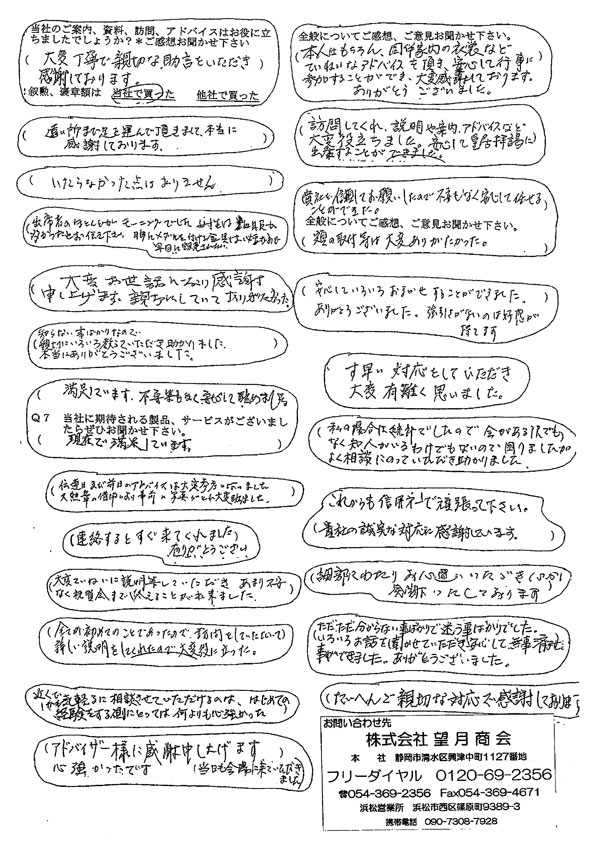 当社のご案内、資料、訪問、アドバイスはお役に立
ちましたでしょうか？＊ご感想お聞かせ下さい
（大変丁寧で親切な助言をいただき
感謝しております。）
叙勲、褒章額は　当社で買った　他社で買った
（遠い所まで足を運んで頂きまして本当に
感謝しております。）
（いたらなかった点はありません）
大変お世話になり感謝
申し上げます。
知らない事ばかりなので
（親切にいろいろ教えていただき助かりました。
本当にありがとうございました。）
（満足しています。
Q7　当社に期待される製品、サービスがございまし
たらぜひお聞かせ下さい。
（現在で満足しています。）
（連絡するとすぐ来てくれました
ありがとうございます）
（大変ていねいに説明等していただき
（全てが初めてのことであったので、訪問をしていただいて
詳しい説明をしてくれたので大変役に立った。）
気軽るに相談させていただけるのは、はじめての
経験をする側にとっては何よりも心強かった）
（アドバイザー様に感謝申し上げます
心強かったです　（当日も会場に来ていただき
ました）
全般についてご感想、ご意見お聞かせ下さい。
（本人はもちろん、同伴家内の衣装など
ていねいなアドバイスを頂き、安心して行事に
参加することができ、大変感謝しております。
ありがとうございました。）
（訪問してくれ、説明や案内、アドバイスなど
大変役立ちました。安心して皇居拝謁に
出席することができました。）
貴社を信頼してお願いしたので不安もなく安心して任せる
ことができた。
全般についてご感想、ご意見お聞かせ下さい。
（額の取付等は大変ありがたかった。）
（安心していろいろおまかせすることができました。
ありがとうございました。強引さがないのは好感が
持てます）
す早い対応をしていただき
大変有難く思いました。
（私の場合は統計でしたので
なく知人がいるわけでもないので困りましたが
よく相談にのっていただき助かりました）
これからも信用第一で頑張って下さい。
（貴社の誠実な対応に感謝しています。）
（細部にわたりお心遣いいただき
感謝いたしております）
ただただ分からない事ばかりで迷う事ばかりでした。
いろいろお話を聞かせていただき安心して無事済む
事ができました。ありがとうございました。
（たいへんで親切な対応で感謝しております
お問い合わせ先
株式会社 望月商会
本　社　静岡市清水区興津中町1127番地
フリーダイヤル　0120-69-2356
☎054-369-2356　Fax054-369-4671
浜松営業所　浜松市西区篠原町9389-3
携帯電話　090-7308-7928